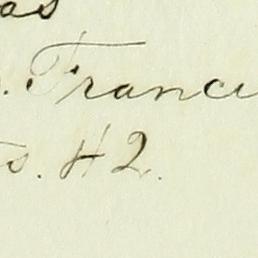 as
. Franci
s. H 2.